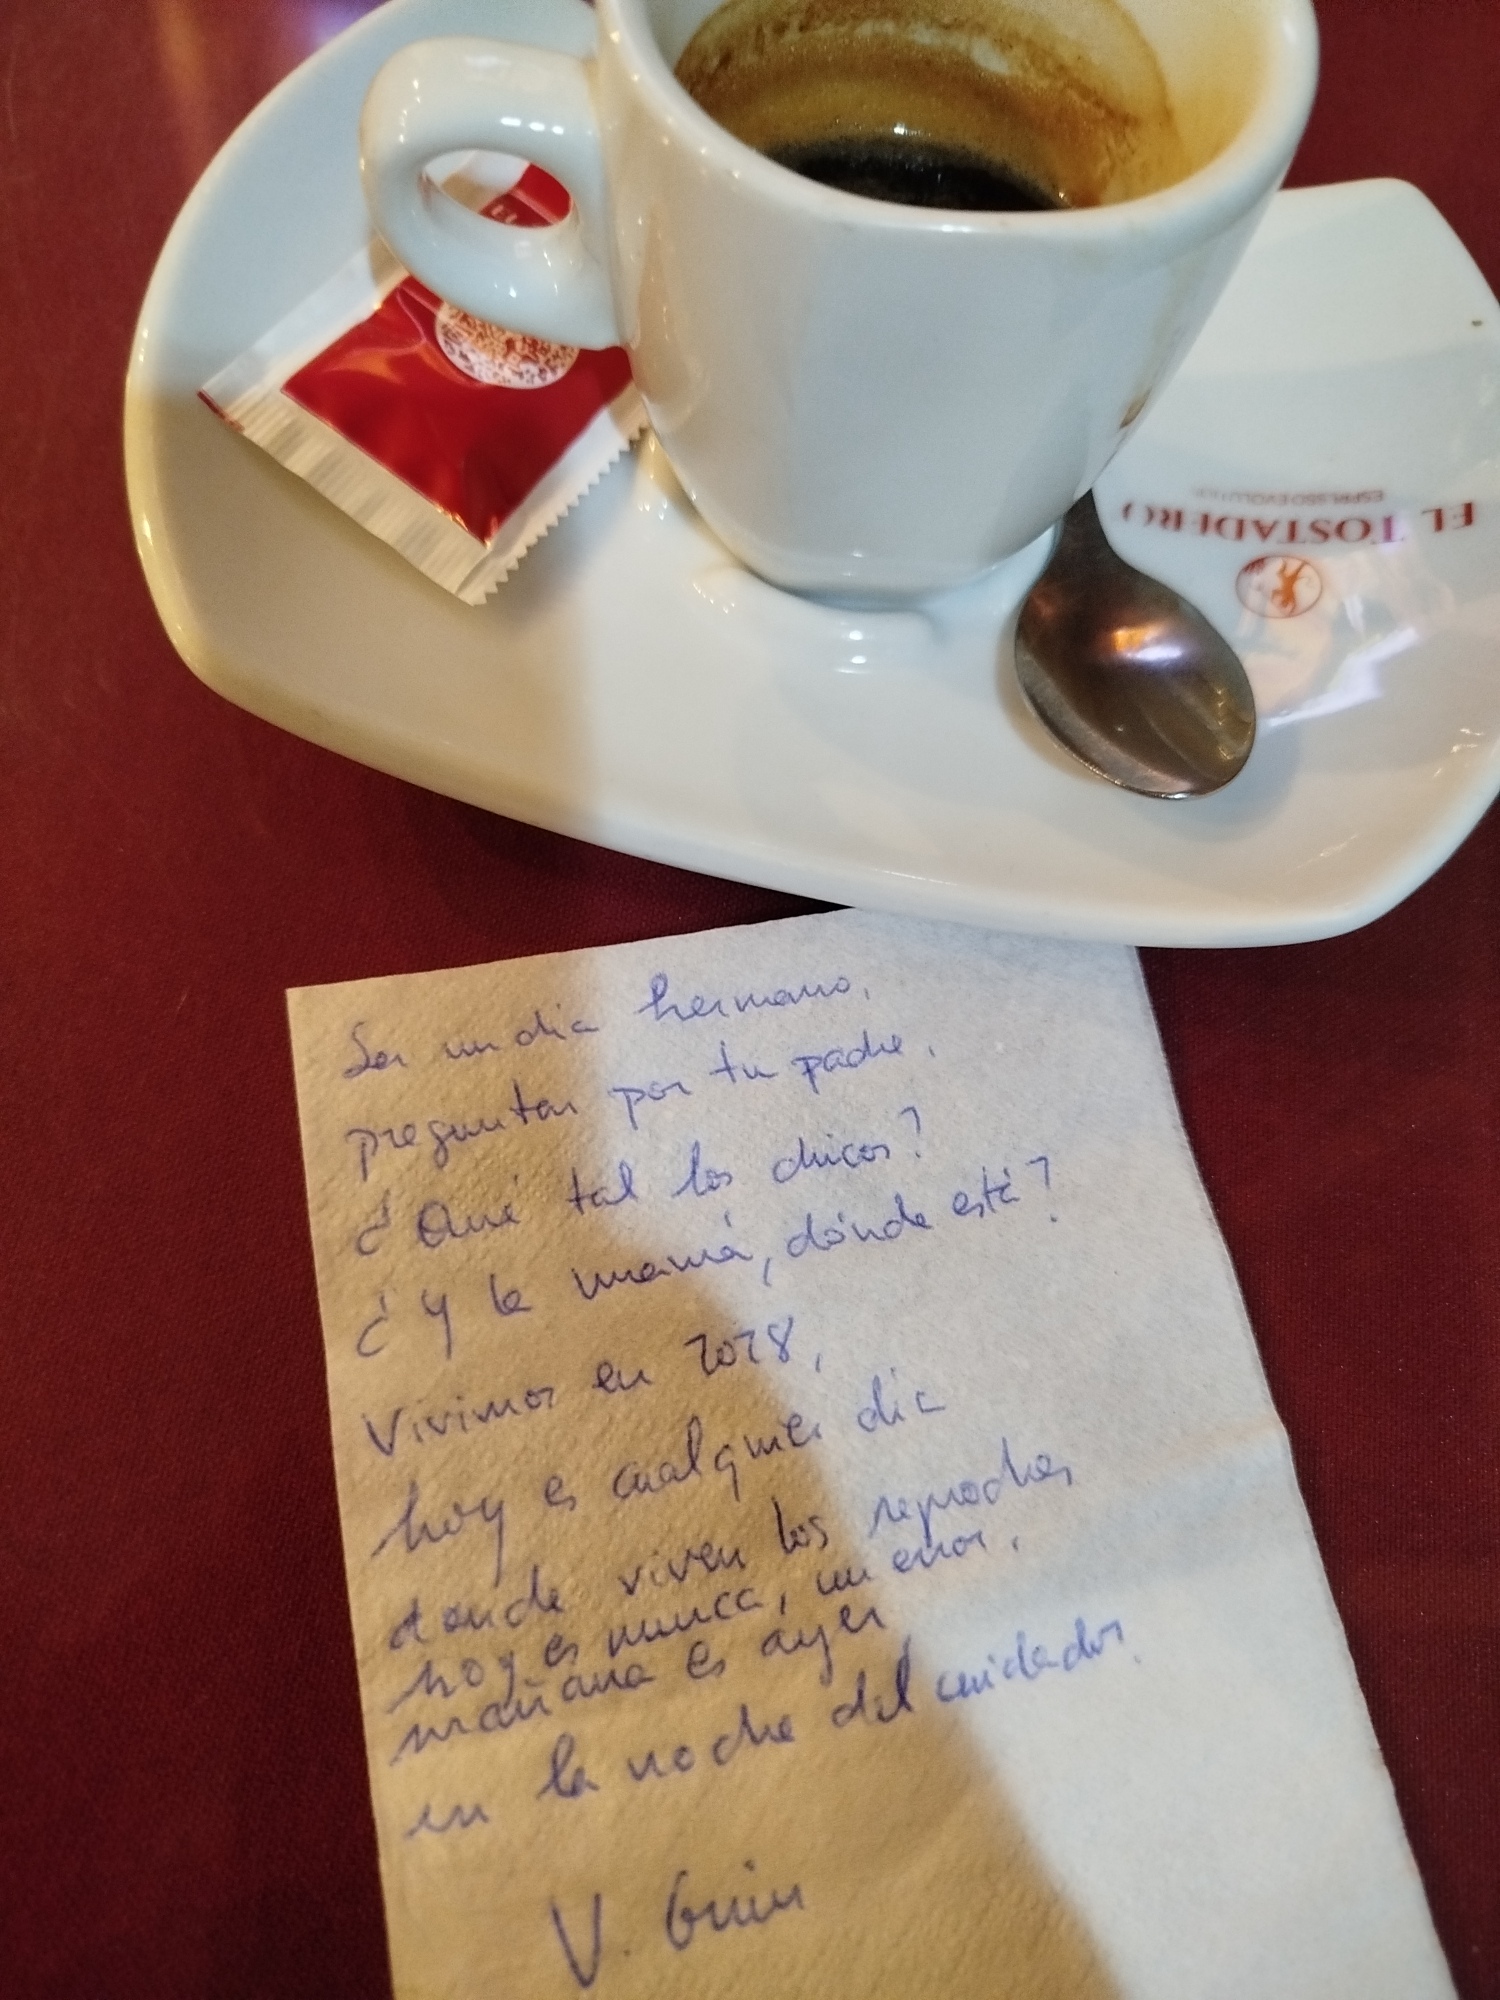 EL TOSTADERO
ESPRESSO EVOLUTION
Ser un dia hermano,
preguntar por tu padre.
¿Qué tal los chicos?
¿Y la mamá, dónde está?
Vivimos en 2028,
hoy es cualquier dia
donde viven los reproches
hoy es nunca, un error,
mañana es ayer
en la noche del cuidador.
V.